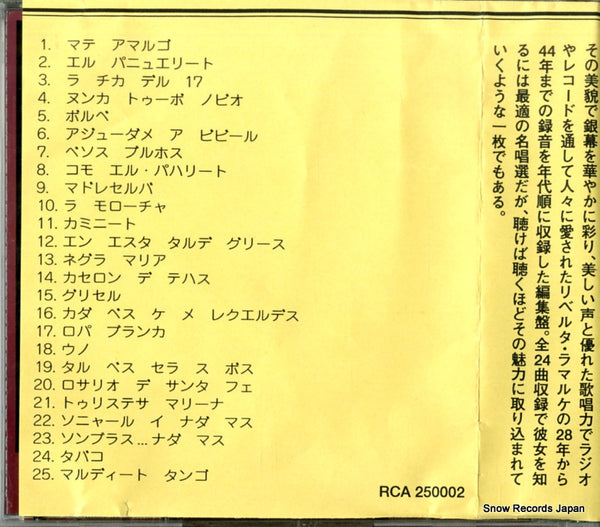 1. マテ アマルゴ
2. エル パニュエリート
3. ラ チカ デル 17
4. ヌンカ トゥーボ ノビオ
5. ボルベ
6. アジューダメ ア ビビール
7. ペソス ブルホス
8. コモ エル・パハリート
9. マドレセルバ
10. ラ モローチャ
11. カミニート
12. エン エスタ タルデ グリース
13. ネグラ マリア
14. カセロン デ テハス
15. グリセル
16. カダ ベス ケ メ レクエルデス
17. ロパ ブランカ
18. ウノ
19. タル ベス セラ ス ボス
20. ロサリオ デ サンタ フェ
21. トゥリステサ マリーナ
22. ソニャール イ ナダ マス
23. ソンブラス...ナダ マス
24. タバコ
25. マルディート タンゴ
RCA 250002
その美貌で銀幕を華やかに彩り、美しい声と優れた歌唱力でラジオ
やレコードを通して人々に愛されたリベルタ・ラマルケの28年から
44年までの録音を年代順に収録した編集盤。全24曲収録で彼女を知
るには最適の名唱選だが、聴けば聴くほどその魅力に取り込まれて
いくような一枚でもある。
Snow Records Japan